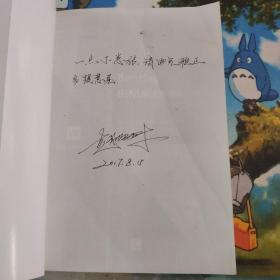 一点小意思，请曲兄雅正
多提意见。
2017.8.15